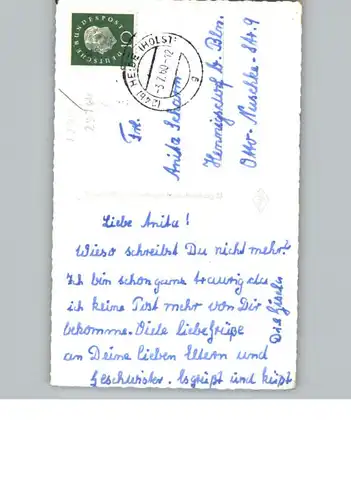 DEUTSCHE BUNDESPOST
10
(24b) HEIDE (HOLST)
-3.7.60-12
Frl.
Anita Scharm
Hennigsdorf b. Bln.
Otto-Nuschke-Str. 9
Liebe Anita!
Wieso schreibst Du nicht mehr?
Ich bin schon ganz traurig da
ich keine Post mehr von Dir
bekomme. Viele liebe Grüße
an Deine lieben Eltern und
Geschwister. Es grüßt und küßt
Dich